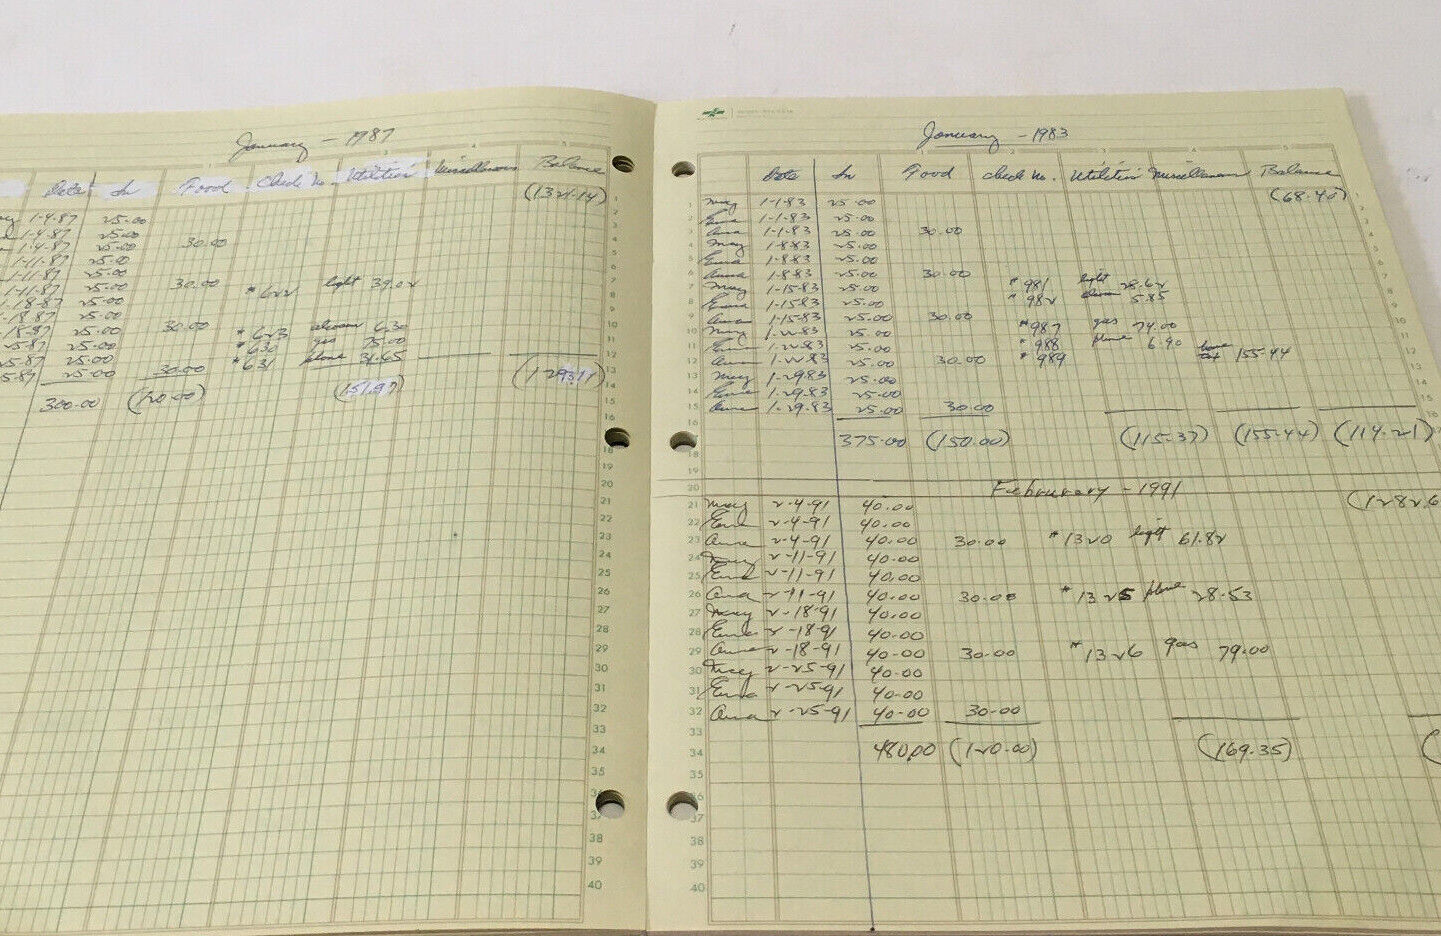 January - 1987
Date In Food Check No. Utilities Miscellaneous Balance
(1321.14)
1-4-87 25.00
1-4-87 25.00
1-4-87 25.00 30.00
1-11-87 25.00
1-11-87 25.00
1-11-87 25.00 30.00 *622 light 39.02
1-18-87 25.00
1-18-87 25.00
18-87 25.00 30.00 *623 6.30
5-87 25.00 *630 gas 75.00
5-87 25.00 *631 phone 31.65
5-87 25.00 30.00
300.00 (120.00) (151.97)
January - 1983
Date In Food Check No. Utilities Miscellaneous Balance
(68.40)
1 May 1-1-83 25.00
2 Erma 1-1-83 25.00
3 Anna 1-1-83 25.00 30.00
4 May 1-8-83 25.00
5 Erma 1-8-83 25.00
6 Anna 1-8-83 25.00 30.00
7 May 1-15-83 25.00 *981 light 28.62
8 Erma 1-15-83 25.00 *982 5.85
9 Anna 1-15-83 25.00 30.00
10 May 1-22-83 25.00 *987 gas 74.00
11 Erma 1-22-83 25.00 *988 phone 6.90
12 Anna 1-22-83 25.00 30.00 *989 home tax 155.44
13 May 1-29-83 25.00
14 Erma 1-29-83 25.00
15 Anna 1-29-83 25.00 30.00
16
17 375.00 (150.00) (115.37) (155.44) (114.21)
18
19
20 Februrary - 1991
21 May 2-4-91 40.00 (1282.6
22 Erma 2-4-91 40.00
23 Anna 2-4-91 40.00 30.00 *1320 light 61.82
24 May 2-11-91 40.00
25 Erma 2-11-91 40.00
26 Anna 2-11-91 40.00 30.00 *1325 phone 28.53
27 May 2-18-91 40.00
28 Erma 2-18-91 40.00
29 Anna 2-18-91 40.00 30.00 *1326 gas 79.00
30 May 2-25-91 40.00
31 Erma 2-25-91 40.00
32 Anna 2-25-91 40.00 30.00
33
34 480.00 (120.00) (169.35)
35
36
37
38
39
40